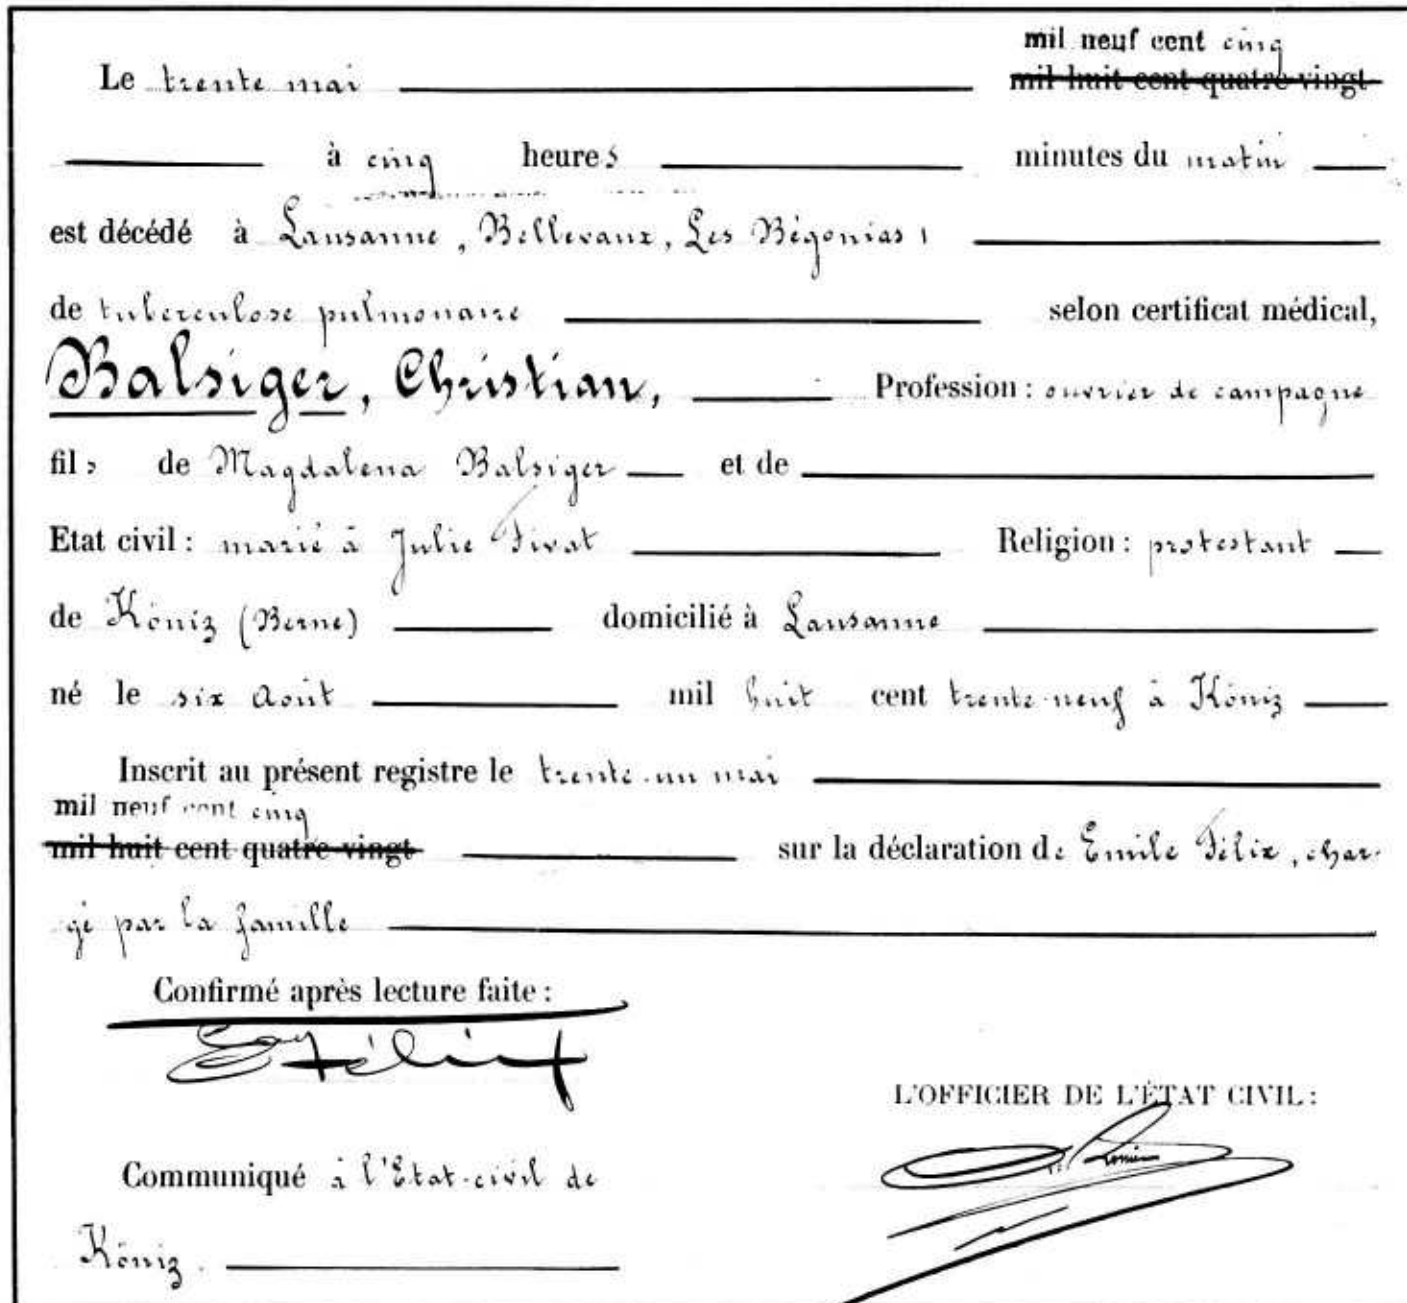 mil neuf cent cinq
Le trente mai mil huit cent quatre-vingt
à cinq heures minutes du matin
est décédé à Lausanne, Bellevaux, Les Bégonias 1
de tuberculose pulmonaire selon certificat médical,
Balsiger, Christian, Profession : ouvrier de campagne
fils de Magdalena Balsiger et de
Etat civil : marié à Julie Fivat Religion : protestant
de Köniz (Berne) domicilié à Lausanne
né le six Août mil huit cent trente-neuf à Köniz
Inscrit au présent registre le trente-un mai
mil neuf cent cinq
mil huit cent quatre-vingt sur la déclaration de Emile Félix, char-
gé par la famille
Confirmé après lecture faite :
Em Félix
L'OFFICIER DE L'ÉTAT CIVIL :
Communiqué à l'Etat-civil de
Köniz.